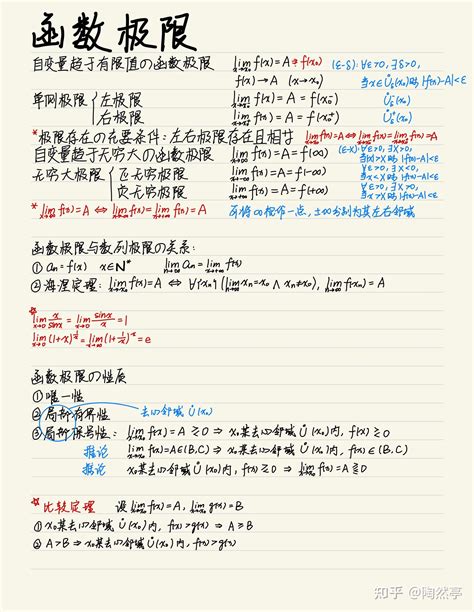 函数极限
自变量趋于有限值の函数极限 lim_{x→x₀} f(x)=A ≠ f(x₀) (ε-δ): ∀ε>0, ∃δ>0,
f(x)→A (x→x₀) 当x∈Ů_δ(x₀)时 |f(x)-A|<ε
单侧极限 { 左极限 lim_{x→x₀⁻} f(x)=A=f(x₀⁻)
右极限 lim_{x→x₀⁺} f(x)=A=f(x₀⁺)
*极限存在の充要条件:左右极限存在且相等 lim_{x→x₀} f(x)=A ⇔ lim_{x→x₀⁻} f(x)=lim_{x→x₀⁺} f(x)=A
自变量趋于无穷大の函数极限 lim_{x→∞} f(x)=A=f(∞) (ε-X): ∀ε>0, ∃X>0, 当|x|>X时 |f(x)-A|<ε
无穷大极限 { 正无穷极限 lim_{x→+∞} f(x)=A=f(+∞) ∀ε>0, ∃X>0,
负无穷极限 lim_{x→-∞} f(x)=A=f(-∞)
* lim_{x→∞} f(x)=A ⇔ lim_{x→+∞} f(x)=lim_{x→-∞} f(x)=A 可将∞视作一点,±∞分别为其左右邻域
函数极限与数列极限の关系:
① aₙ=f(n) n∈N* lim_{n→∞} aₙ=lim_{x→+∞} f(x)
② 海涅定理: lim_{x→x₀} f(x)=A ⇔
* lim_{x→0} x/sinx = lim_{x→0} sinx/x = 1
lim_{x→0} (1+x)^{1/x} = lim_{x→∞} (1+1/x)^x = e
函数极限の性质
① 唯一性
② 局部有界性 去心邻域 Ů(x₀)
③ 局部保号性: lim_{x→x₀} f(x)=A≷0 ⇒ x₀某去心邻域 Ů(x₀)内, f(x)≷0
推论 lim_{x→x₀} f(x)=A∈(B,C) ⇒ x₀某去心邻域 Ů(x₀)内, f(x)∈(B,C)
推论 x₀某去心邻域 Ů(x₀)内, f(x)≷0 ⇒ lim_{x→x₀} f(x)=A≷0
* 比较定理 设 lim_{x→x₀} f(x)=A, lim_{x→x₀} g(x)=B
① x₀某去心邻域 Ů(x₀)内, f(x)>g(x) ⇒ A≥B
② A>B ⇒ x₀某去心邻域 Ů(x₀)内, f(x)>g(x)
知乎 @陶然亭